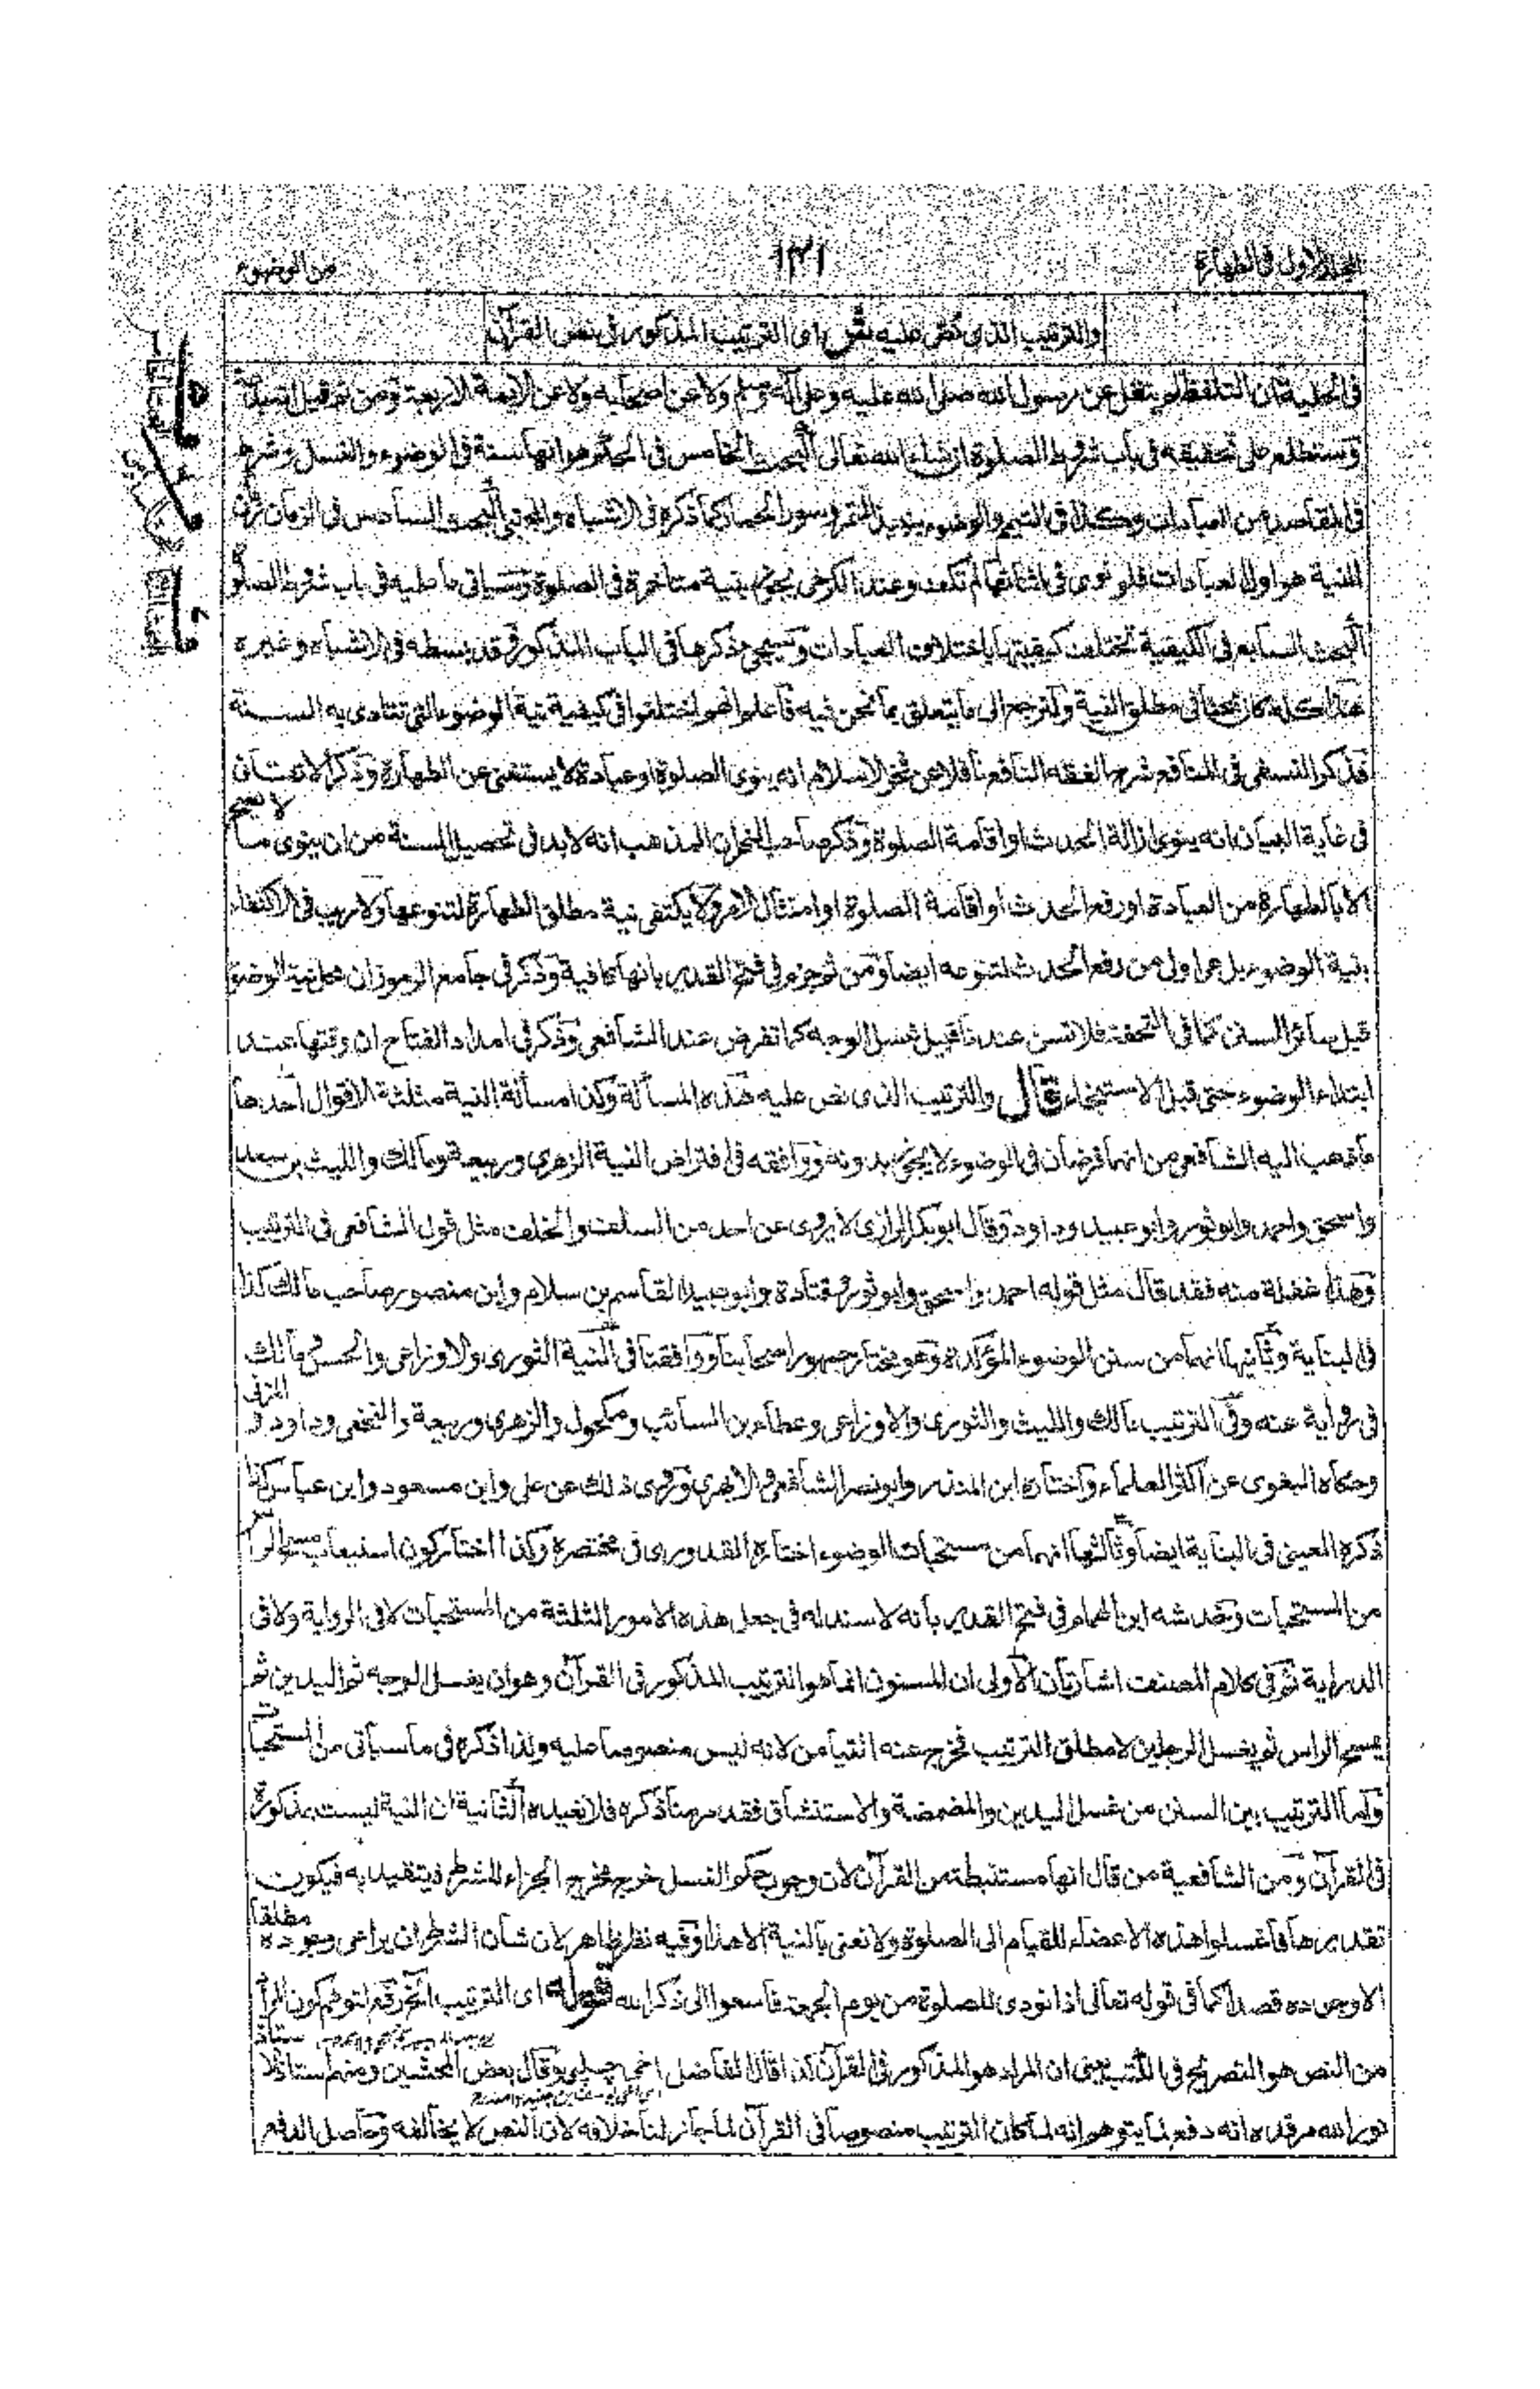 المجلد الاول فى الطهارة ١٣١ من الوضوء
والترتيب الذى نص عليه ش اى الترتيب المذكور فى نص القرآن
فى الحلية ان التلفظ لم ينقل عن رسول الله صلى الله عليه وعلى آله وسلم ولا عن اصحابه ولا عن الايمة الاربعة ومن ثم قيل انه بدعة
وستطلع على تحقيقه فى باب شروط الصلوة ان شاء الله تعالى البحث الخامس فى الحكم هو انها سنة فى الوضوء والغسل وشرط
فى المقاصد من العبادات وكذا فى التيمم والوضوء بنبيذ التمر وسور الحمار كما ذكره فى الاشباه والمجتبى البحث السادس فى الزمان
للنية هو اول العبادات فلو نوى فى اثنائها لم تكف وعند الكرخى يجوز بنية متاخرة فى الصلوة وسياتى ما عليه فى باب شروط الصلوة
البحث السابع فى الكيفية تختلف كيفيتها باختلاف العبادات وسيجئ ذكرها فى الباب المذكور وقد بسطه فى الاشباه وغيره
هذا كله كان بحثا فى مطلق النية ولنرجع الى ما يتعلق بما نحن فيه فاعلم انهم اختلفوا فى كيفية نية الوضوء التى تتادى به السنة
فذكر النسفى فى المنافع شرح الفقه النافع ناقلا عن شيخ الاسلام انه ينوى الصلوة او عبادة لا يستغنى عن الطهارة وذكر الاتقانى
فى غاية البيان انه ينوى ازالة الحدث او اقامة الصلوة وذكر صاحب البحر ان المذهب انه لا بد فى تحصيل السنة من ان ينوى ما لا تصح
الا بالطهارة من العبادة او رفع الحدث او اقامة الصلوة او امتثال الامر ولا يكتفى نية مطلق الطهارة لتنوعها ولا ريب فى الاكتفاء
بنية الوضوء بل هى اولى من رفع الحدث لتنوعه ايضا ومن ثم جزم فى فتح القدير بانها كافية وذكر فى جامع الرموز ان محل نية الوضوء
قبل سائر السنن كما فى التحفة فلا تسن عندنا قبيل غسل الوجه كما تفرض عند الشافعى وذكر فى امداد الفتاح ان وقتها عند
ابتداء الوضوء حتى قبل الاستنجاء قال والترتيب الذى نص عليه هذه المسألة وكذا مسألة النية مثلثة الاقوال احدها
ما ذهب اليه الشافعى من انهما فرضان فى الوضوء لا يجوز بدونه ووافقه فى افتراض النية الزهرى وربيعة ومالك والليث بن سعد
واسحق واحمد وابو ثور وابو عبيد وداود وقال ابو بكر الرازى لا يروى عن احد من السلف والخلف مثل قول الشافعى فى الترتيب
وهذا غفلة منه فقد قال مثل قوله احمد واسحق وابو ثور وقتادة وابو عبيد القاسم بن سلام وابن منصور صاحب مالك كذا
فى البناية وثانيها انهما من سنن الوضوء المؤكدة وهو مختار جمهور اصحابنا ووافقنا فى النية الثورى والاوزاعى والحسن ومالك
فى رواية عنه وفى الترتيب مالك والليث والثورى والاوزاعى وعطاء بن السائب ومكحول والزهرى وربيعة والنخعى وداود والمزنى
وحكاه البغوى عن اكثر العلماء واختاره ابن المنذر وابو نصر الشافعى والابهرى وروى ذلك عن على وابن مسعود وابن عباس كذا
ذكره العينى فى البناية ايضا وثالثها انهما من مستحبات الوضوء اختاره القدورى فى مختصره وكذا اختار كون استيعاب مسح الرأس
من المستحبات وخدشه ابن الهمام فى فتح القدير بانه لا سند له فى جعل هذه الامور الثلثة من المستحبات لا فى الرواية ولا فى
الدراية ثم فى كلام المصنف اشارتان الاولى ان المسنون انما هو الترتيب المذكور فى القرآن وهو ان يغسل الوجه ثم اليدين ثم
يمسح الراس ثم يغسل الرجلين لا مطلق الترتيب فخرج عنه التيامن لانه ليس منصوصا عليه ولذا ذكره فى ما سيأتى من المستحبات
واما الترتيب بين السنن من غسل اليدين والمضمضة والاستنشاق فقد مر منا ذكره فلا نعيده الثانية ان النية ليست بمذكورة
فى القرآن ومن الشافعية من قال انها مستنبطة من القرآن لان وجوب حكم الغسل خرج مخرج الجزاء للشرط فيتقيد به فيكون
تقديرها فاغسلوا هذه الاعضاء للقيام الى الصلوة ولا نعنى بالنية الا هذا وفيه نظر ظاهر لان شان الشرط ان يراعى وجوده مطلقا
لا وجوده قصدا كما فى قوله تعالى اذا نودى للصلوة من يوم الجمعة فاسعوا الى ذكر الله قوله اى الترتيب الخ دفع لتوهم كون المراد
من النص هو التصريح فى الكتب يعنى ان المراد هو المذكور فى القرآن كذا قال الفاضل اخى چلپى وقال بعض المحشين ومنهم استاذ
نور الله مرقده انه دفع لما يتوهم انه لما كان الترتيب منصوصا فى القرآن لما جاز لنا خلافه لان النص لا يخالفه وحاصل الدفع